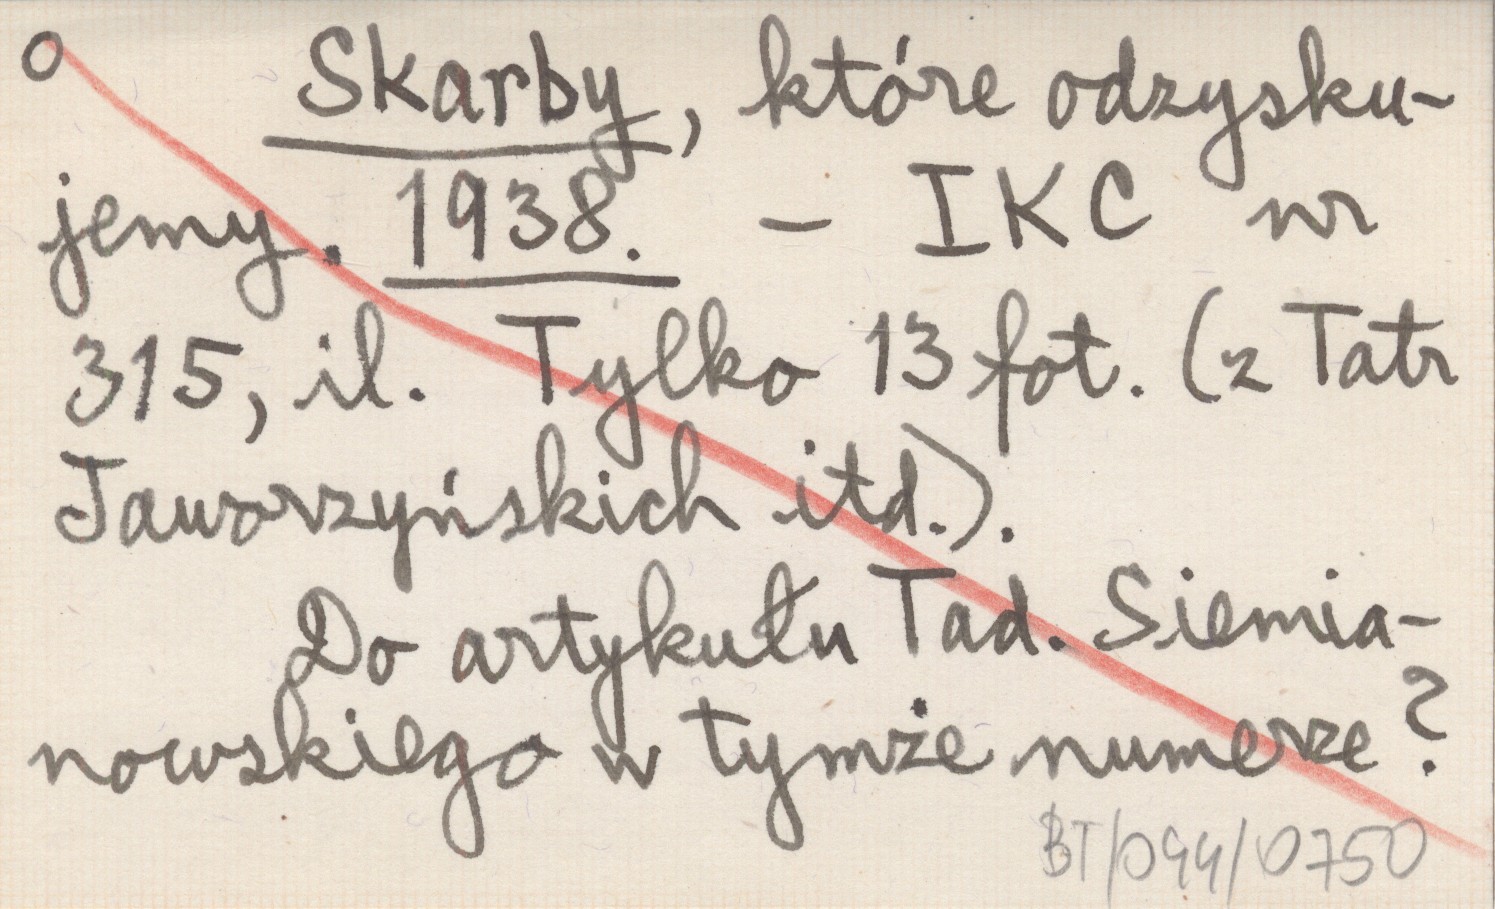 o Skarby, które odzysku-
jemy. 1938. – IKC nr
315, il. Tylko 13 fot. (z Tatr
Jaworzyńskich itd.).
Do artykułu Tad. Siemia-
nowskiego w tymże numerze?
BT/094/0750